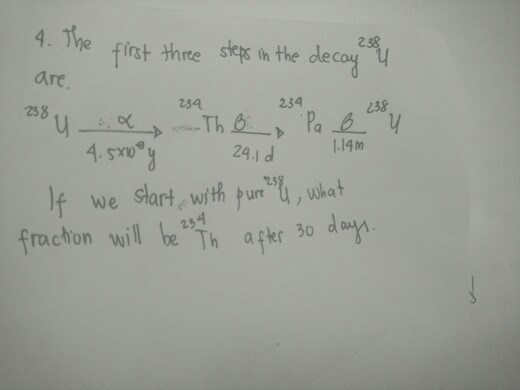 4. The first three steps in the decay ²³⁸U
are.
²³⁸U α 4.5x10⁹y ²³⁴Th β 24.1d ²³⁴Pa β 1.14m ²³⁸U
If we start with pure ²³⁸U, what
fraction will be ²³⁴Th after 30 days.